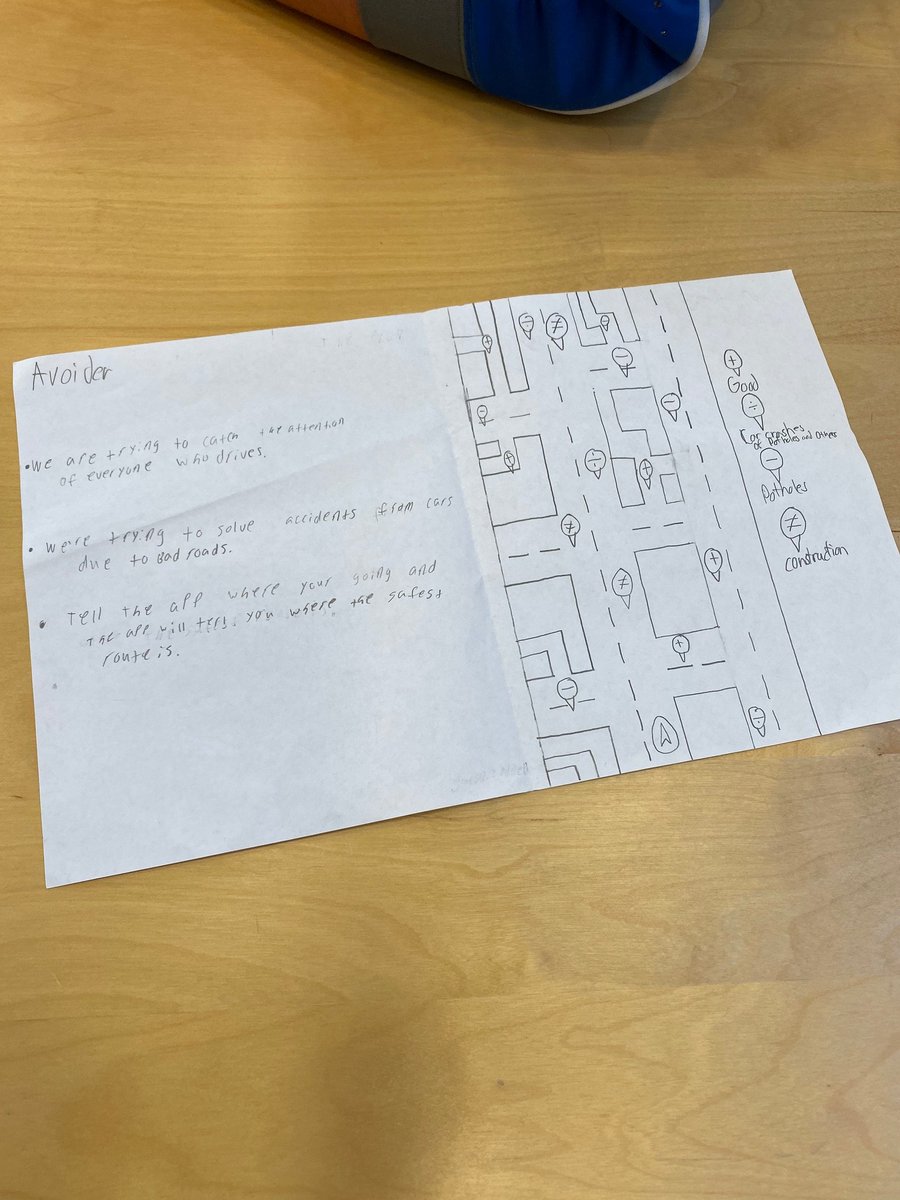 Avoider
• We are trying to catch the attention
of everyone who drives.
• We're trying to solve accidents from cars
due to Bad roads.
• Tell the app where your going and
the app will tell you where the safest
route is.
+
Good
÷
Car crashes
of Potholes and others
−
Potholes
≠
construction